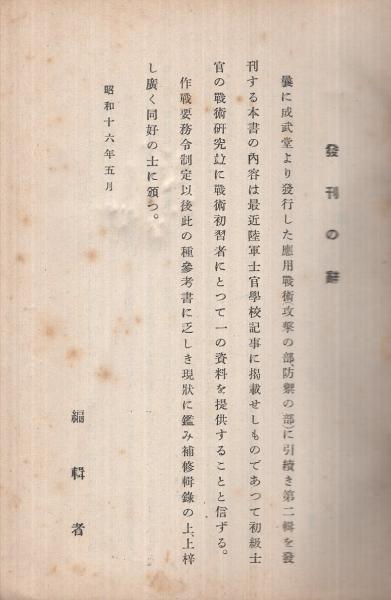 發刊の辭
曩に成武堂より發行した應用戰術攻撃の部、防禦の部)に引續き第二輯を發
刊する本書の內容は最近陸軍士官學校記事に掲載せしものであつて初級士
官の戰術硏究竝に戰術初習者にとつて一の資料を提供することと信ずる。
作戰要務令制定以後此の種參考書に乏しき現狀に鑑み補修輯錄の上、上梓
し廣く同好の士に頒つ。
昭和十六年五月
編輯者